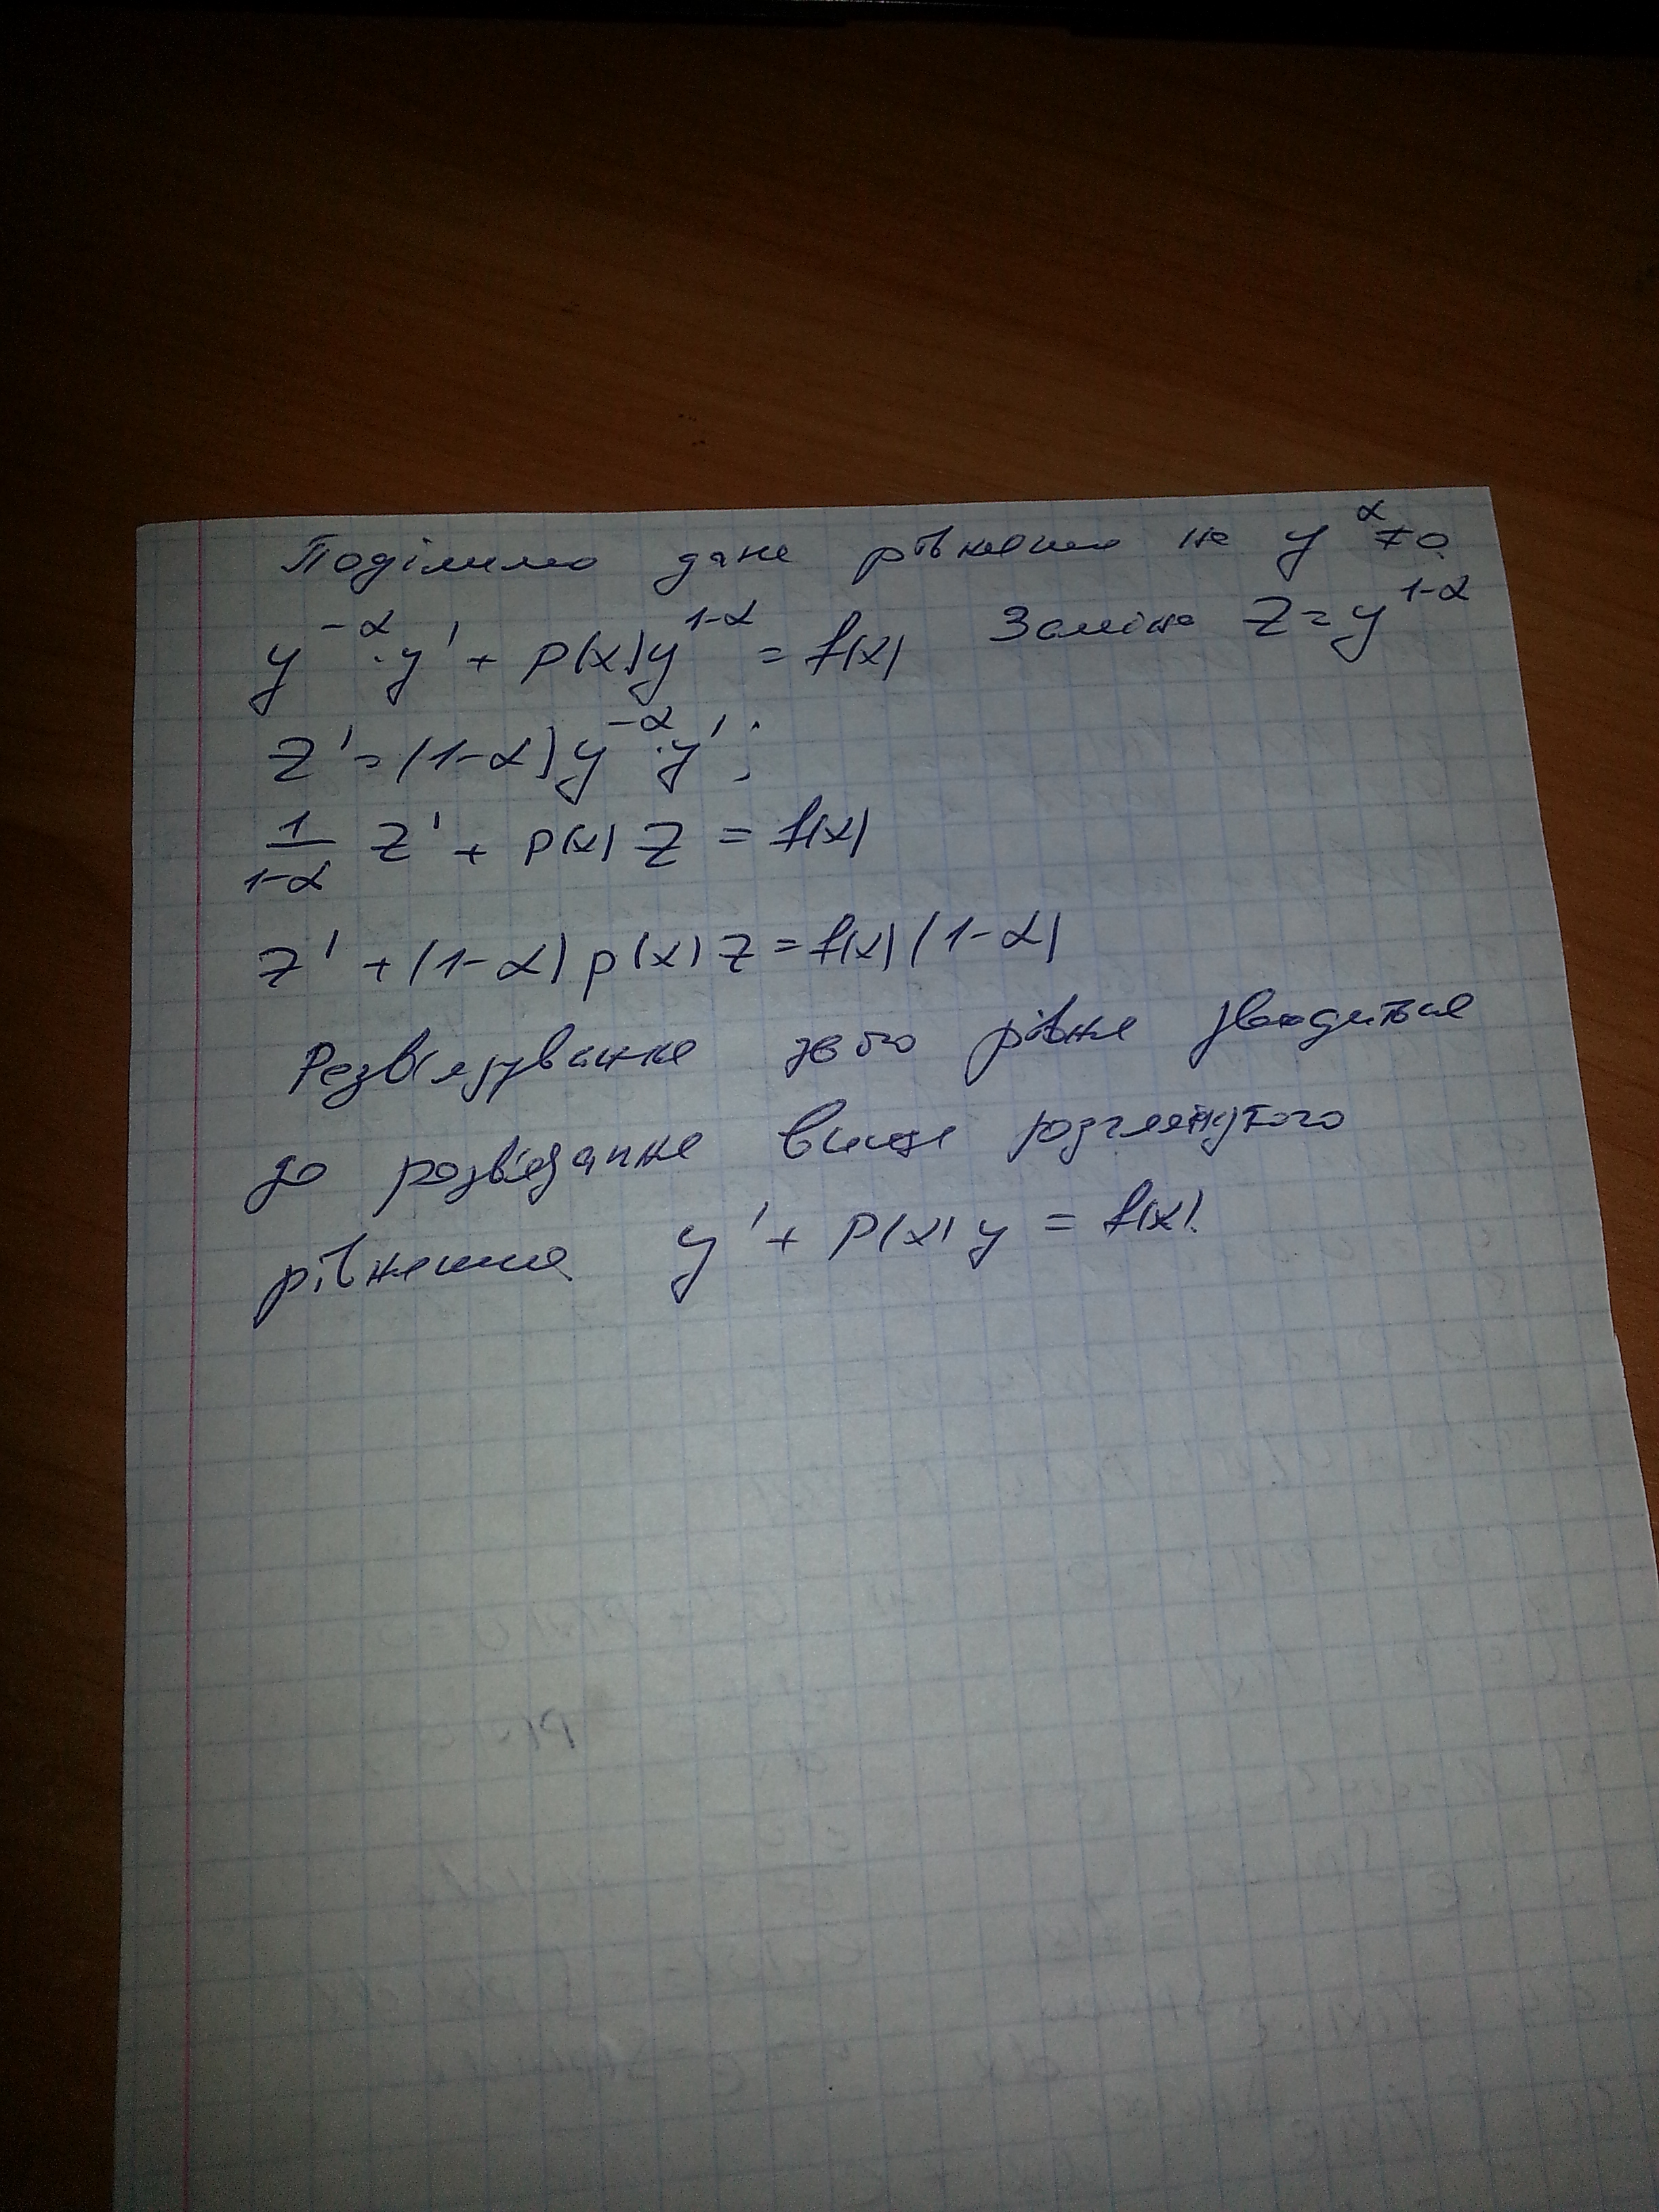 Поділимо дане рівняння на y^α ≠ 0.
y^{-α}·y' + p(x)y^{1-α} = f(x) Заміна z = y^{1-α}
z' = (1-α)y^{-α}·y';
1/(1-α) z' + p(x) z = f(x)
z' + (1-α) p(x) z = f(x)(1-α)
Розв'язування рівня зводиться
до розв'язання вище розглянутого
рівняння y' + p(x) y = f(x).